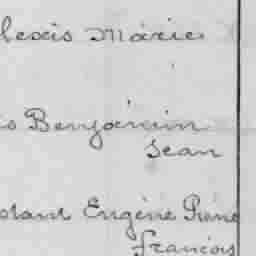 lexis Marie
s Benjamin
Jean
stant Eugène Pierre
François